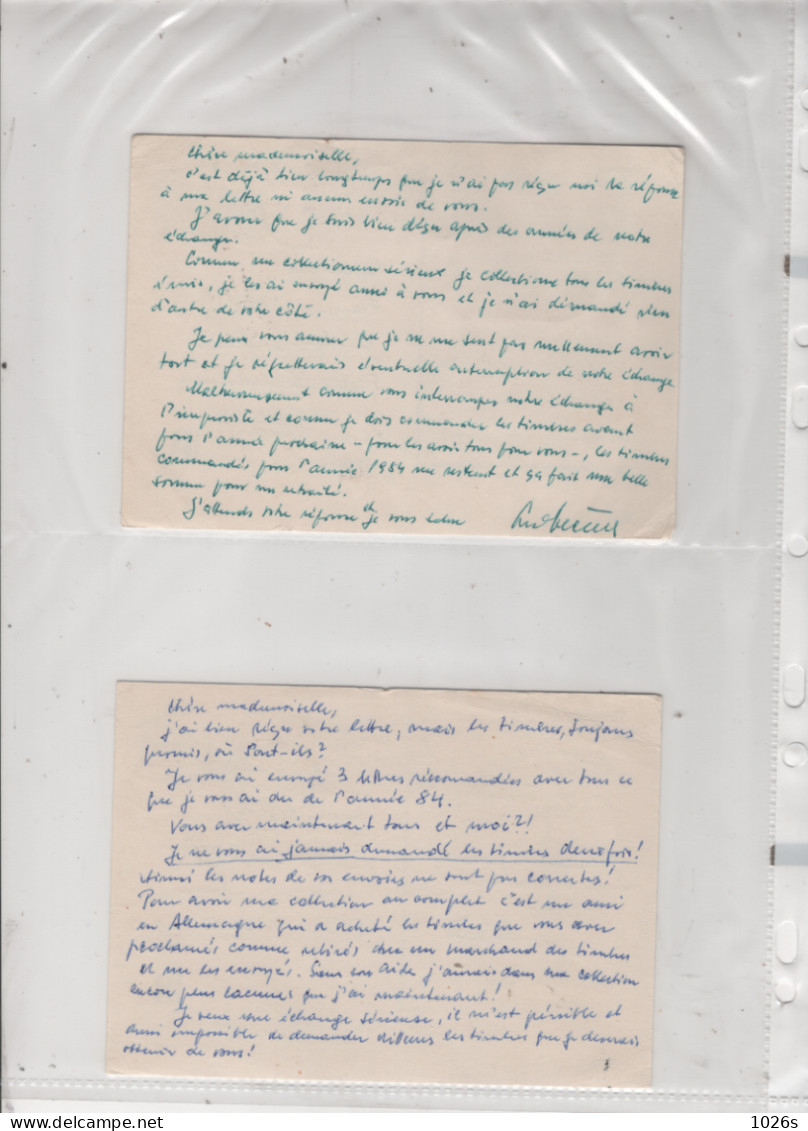 Chère mademoiselle,
c'est déjà bien longtemps que je n'ai pas réçu ni la réponse
à ma lettre ni aucun envoie de vous.
J'avoue que je suis bien déçu après des années de notre
échange.
Comme un collectionneur sérieux je collectionne tous les timbres
émis, je les ai envoyé aussi à vous et je n'ai démandé rien
d'autre de votre côté.
Je peux vous assurer que je ne me sent pas nullement avoir
tort et je régretterais éventuelle interruption de notre échange
Malheureusement comme vous interrompez notre échange à
l'improviste et comme je dois commander les timbres avant
pour l'année prochaine - pour les avoir tous pour vous -, les timbres
commandés pour l'année 1984 me restent et ça fait une belle
somme pour un retraité.
J'attends votre réponse et je vous salue
Chère mademoiselle,
j'ai bien réçu votre lettre, mais les timbres, toujours
promis, où sont-ils?
Je vous ai envoyé 3 lettres récomandées avec tous ce
que je vous ai du de l'année 84.
Vous avez maintenant tous et moi?!
Je ne vous ai jamais demandé les timbres deux fois!
Aussi les notes de vos envoies ne sont pas correctes!
Pour avoir ma collection au complet c'est un ami
en Allemagne qui a acheté les timbres que vous avez
proclamés comme retirés chez un marchand des timbres
et me les envoyés. Sans son aide j'aurais dans ma collection
encore plus lacunes que j'ai maintenant!
Je veux une échange sérieuse, il m'est pénible et
aussi impossible de demander ailleurs les timbres que je devrais
obtenir de vous!
3
1026s